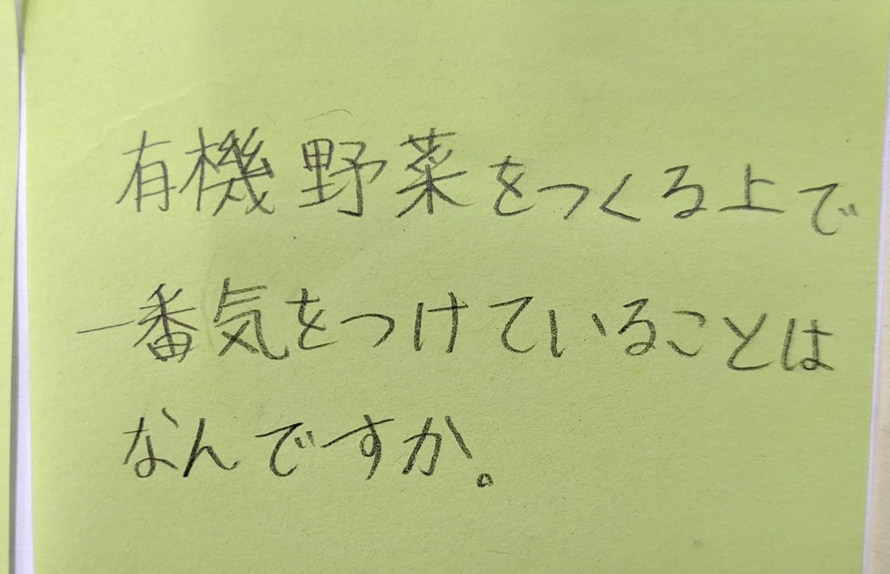 有機野菜をつくる上で
一番気をつけていることは
なんですか。